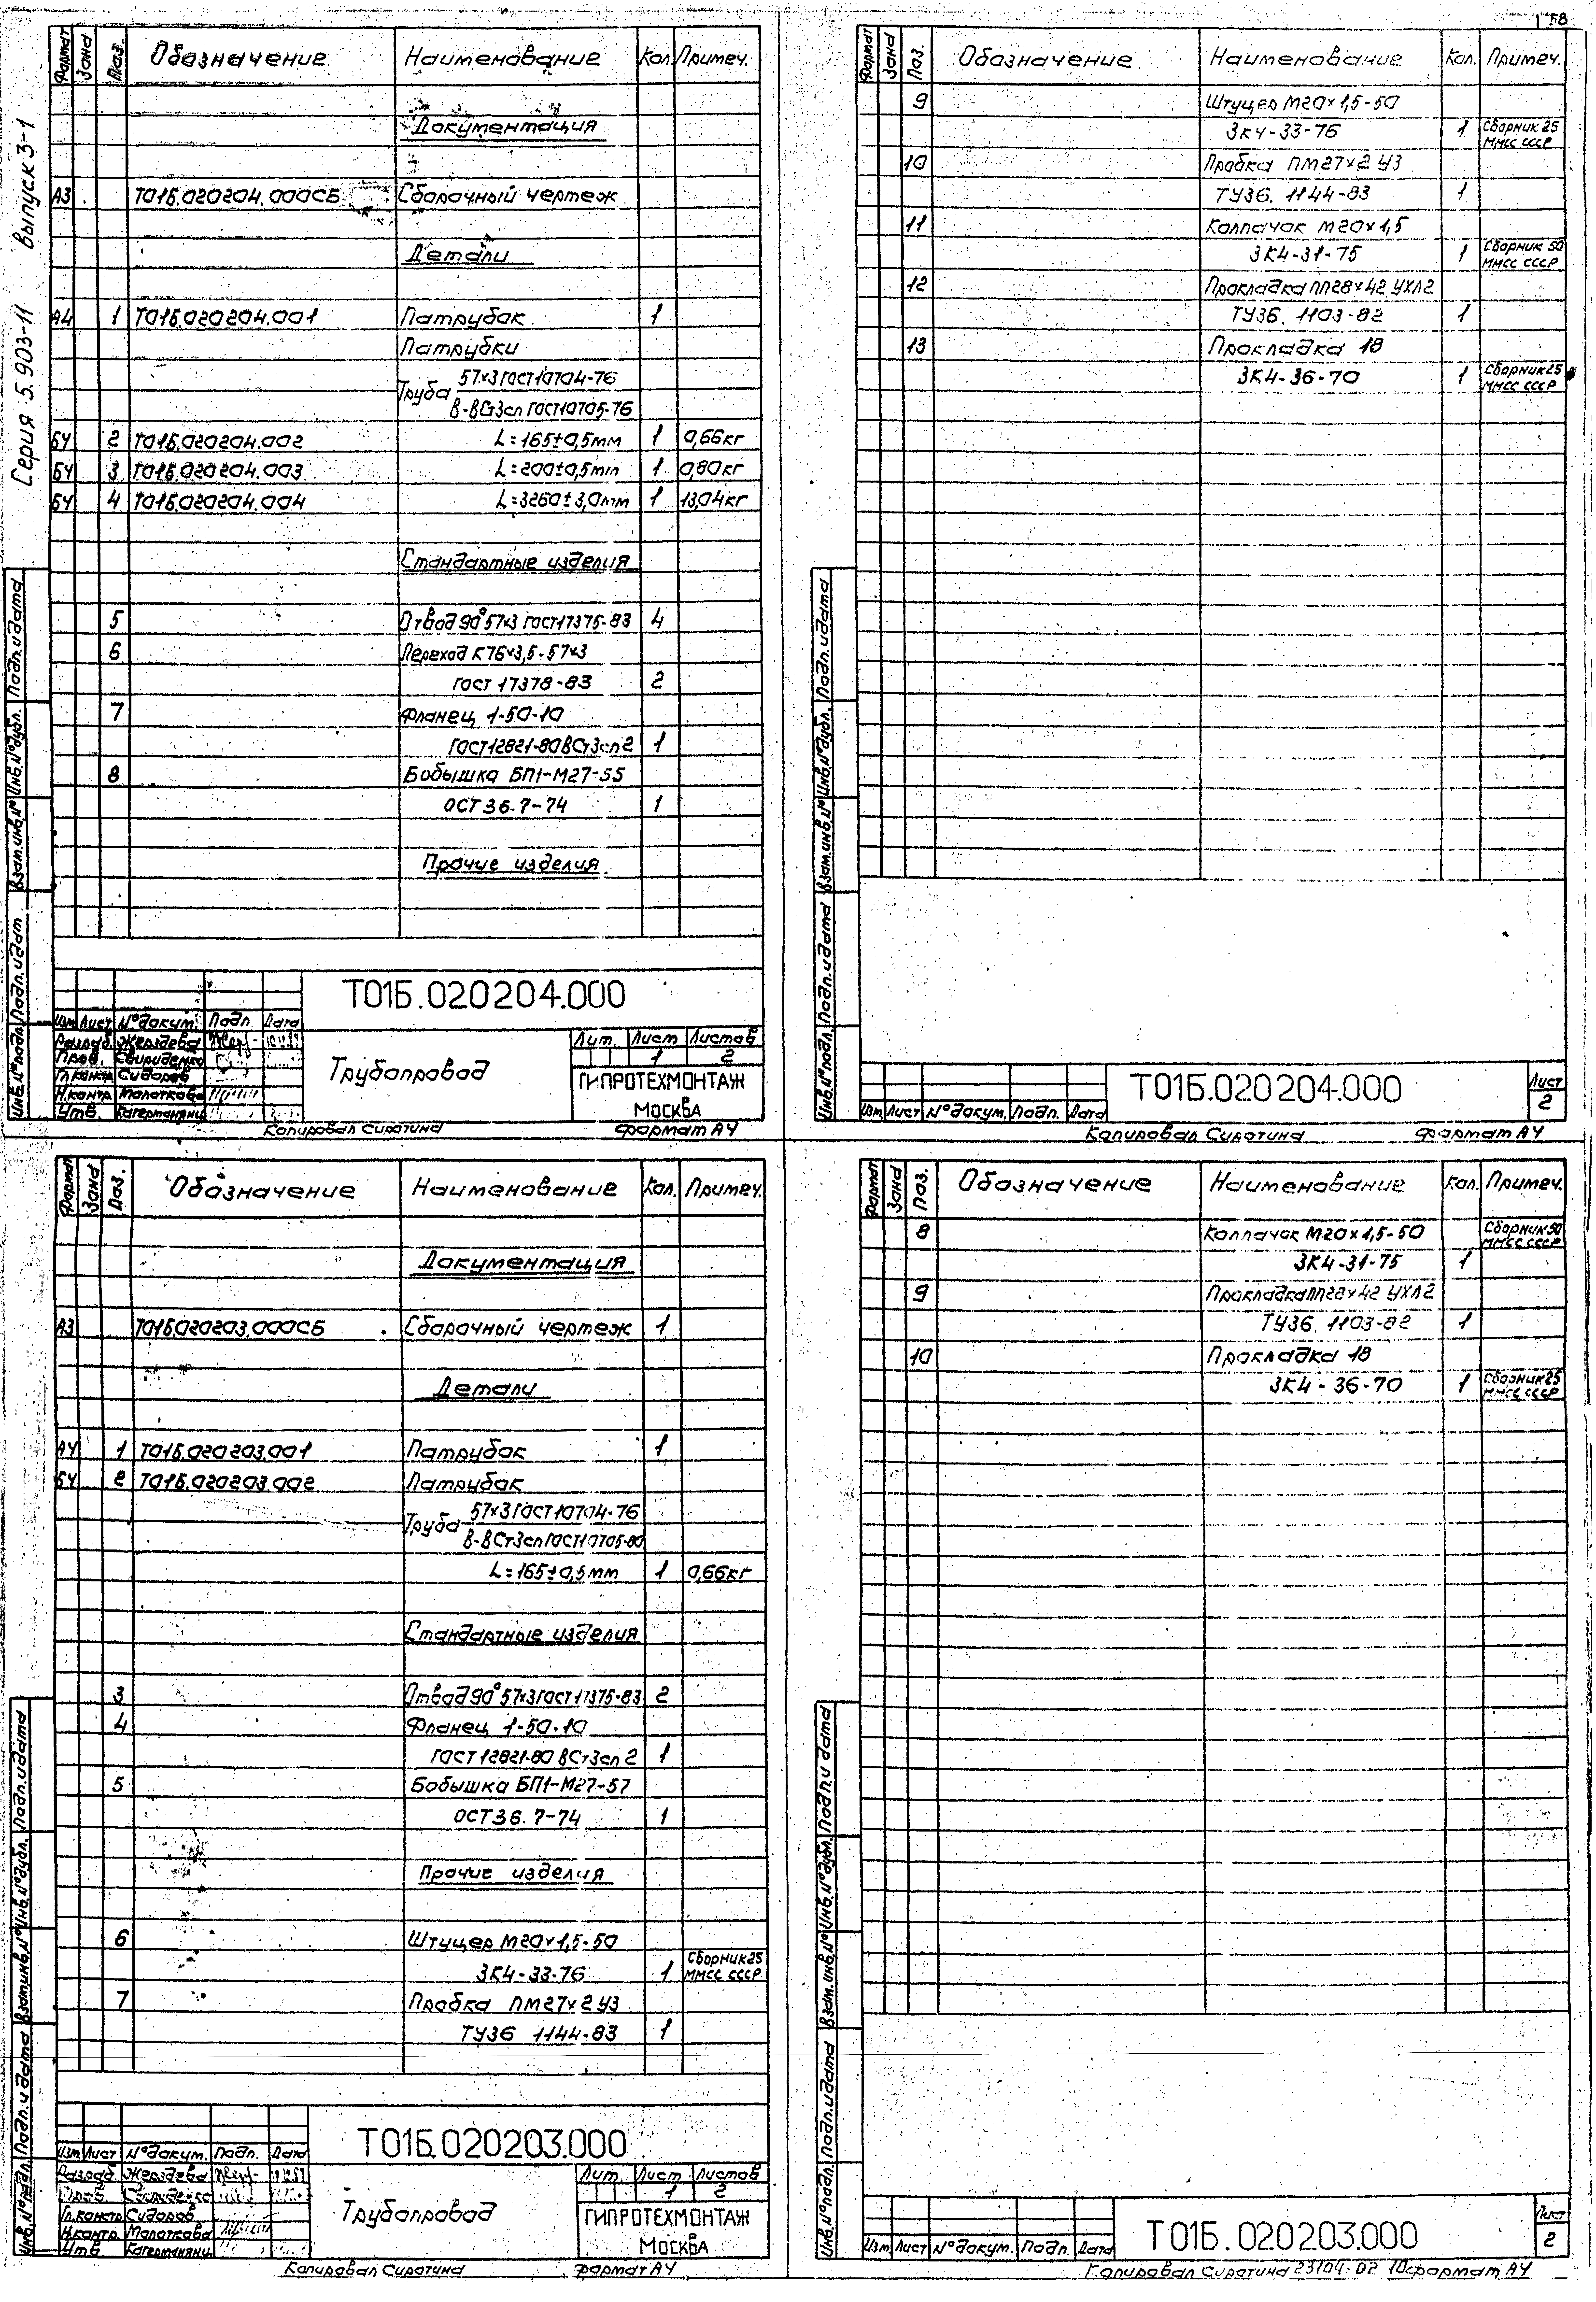 58
Серия 5.903-11 Выпуск 3-1
Формат Зона Поз. Обозначение Наименование Кол. Примеч.
Документация
А3 Т01Б.020204.000СБ Сборочный чертеж
Детали
А4 1 Т01Б.020204.001 Патрубок 1
Патрубки
Труба 57×3 ГОСТ 10704-76
В-ВСт3сп ГОСТ 10705-76
БЧ 2 Т01Б.020204.002 L=165±0,5мм 1 0,66кг
БЧ 3 Т01Б.020204.003 L=200±0,5мм 1 0,80кг
БЧ 4 Т01Б.020204.004 L=3260±3,0мм 1 13,04кг
Стандартные изделия
5 Отвод 90° 57×3 ГОСТ 17375-83 4
6 Переход К76×3,5-57×3
ГОСТ 17378-83 2
7 Фланец 1-50-10
ГОСТ 12821-80 ВСт3сп2 1
8 Бобышка БП1-М27-55
ОСТ 36.7-74 1
Прочие изделия
Инв.№подл. Подп.и дат Взам.инв.№ Инв.№дубл. Подп.и дата
Т01Б.020204.000
Изм Лист №докум. Подп. Дата
Разраб. Жерздева
Пров. Свириденко
Гл.констр Сидоров
Н.контр Молоткова
Утв.
Трубопровод
Лит. Лист Листов
1 2
ГИПРОТЕХМОНТАЖ
МОСКВА
Копировал Сиротина Формат А4
Формат Зона Поз. Обозначение Наименование Кол. Примеч.
9 Штуцер М20×1,5-50
ЗК4-33-76 1 Сборник 25
ММСС СССР
10 Пробка ПМ27×2 У3
ТУ36.1144-83 1
11 Колпачок М20×1,5
ЗК4-31-75 1 Сборник 50
ММСС СССР
12 Прокладка ПП28×42 УХЛ2
ТУ36.1103-82 1
13 Прокладка 18
ЗК4-36-70 1 Сборник 25
ММСС СССР
Инв.№подл. Подп.и дата Взам.инв.№ Инв.№дубл. Подп.и дата
Изм Лист №докум. Подп. Дата
Т01Б.020204.000
Лист
2
Копировал Сиротина Формат А4
Формат Зона Поз. Обозначение Наименование Кол. Примеч.
Документация
А3 Т01Б.020203.000СБ Сборочный чертеж 1
Детали
А4 1 Т01Б.020203.001 Патрубок 1
БЧ 2 Т01Б.020203.002 Патрубок
Труба 57×3 ГОСТ 10704-76
В-ВСт3сп ГОСТ 10705-80
L=165±0,5мм 1 0,66кг
Стандартные изделия
3 Отвод 90° 57×3 ГОСТ 17375-83 2
4 Фланец 1-50-10
ГОСТ 12821-80 ВСт3сп2 1
5 Бобышка БП1-М27-57
ОСТ 36.7-74 1
Прочие изделия
6 Штуцер М20×1,5-50
ЗК4-33-76 1 Сборник 25
ММСС СССР
7 Пробка ПМ27×2 У3
ТУ36 1144-83 1
Инв.№подл. Подп.и дата Взам.инв.№ Инв.№дубл. Подп.и дата
Т01Б.020203.000
Изм Лист №докум. Подп. Дата
Разраб. Жерздева
Гл.констр Сидоров
Н.контр. Молоткова
Утв
Трубопровод
Лит. Лист Листов
1 2
ГИПРОТЕХМОНТАЖ
МОСКВА
Копировал Сиротина Формат А4
Формат Зона Поз. Обозначение Наименование Кол. Примеч.
8 Колпачок М20×1,5-50 Сборник 50
ММСС СССР
ЗК4-31-75 1
9 Прокладка ПП28×42 УХЛ2
ТУ36.1103-82 1
10 Прокладка 18
ЗК4-36-70 1 Сборник 25
ММСС СССР
Инв.№подл. Подп.и дата Взам.инв.№ Инв.№дубл. Подп.и дата
Изм Лист №докум. Подп. Дата
Т01Б.020203.000
Лист
2
Копировал Сиротина 23104-02 10 Формат А4